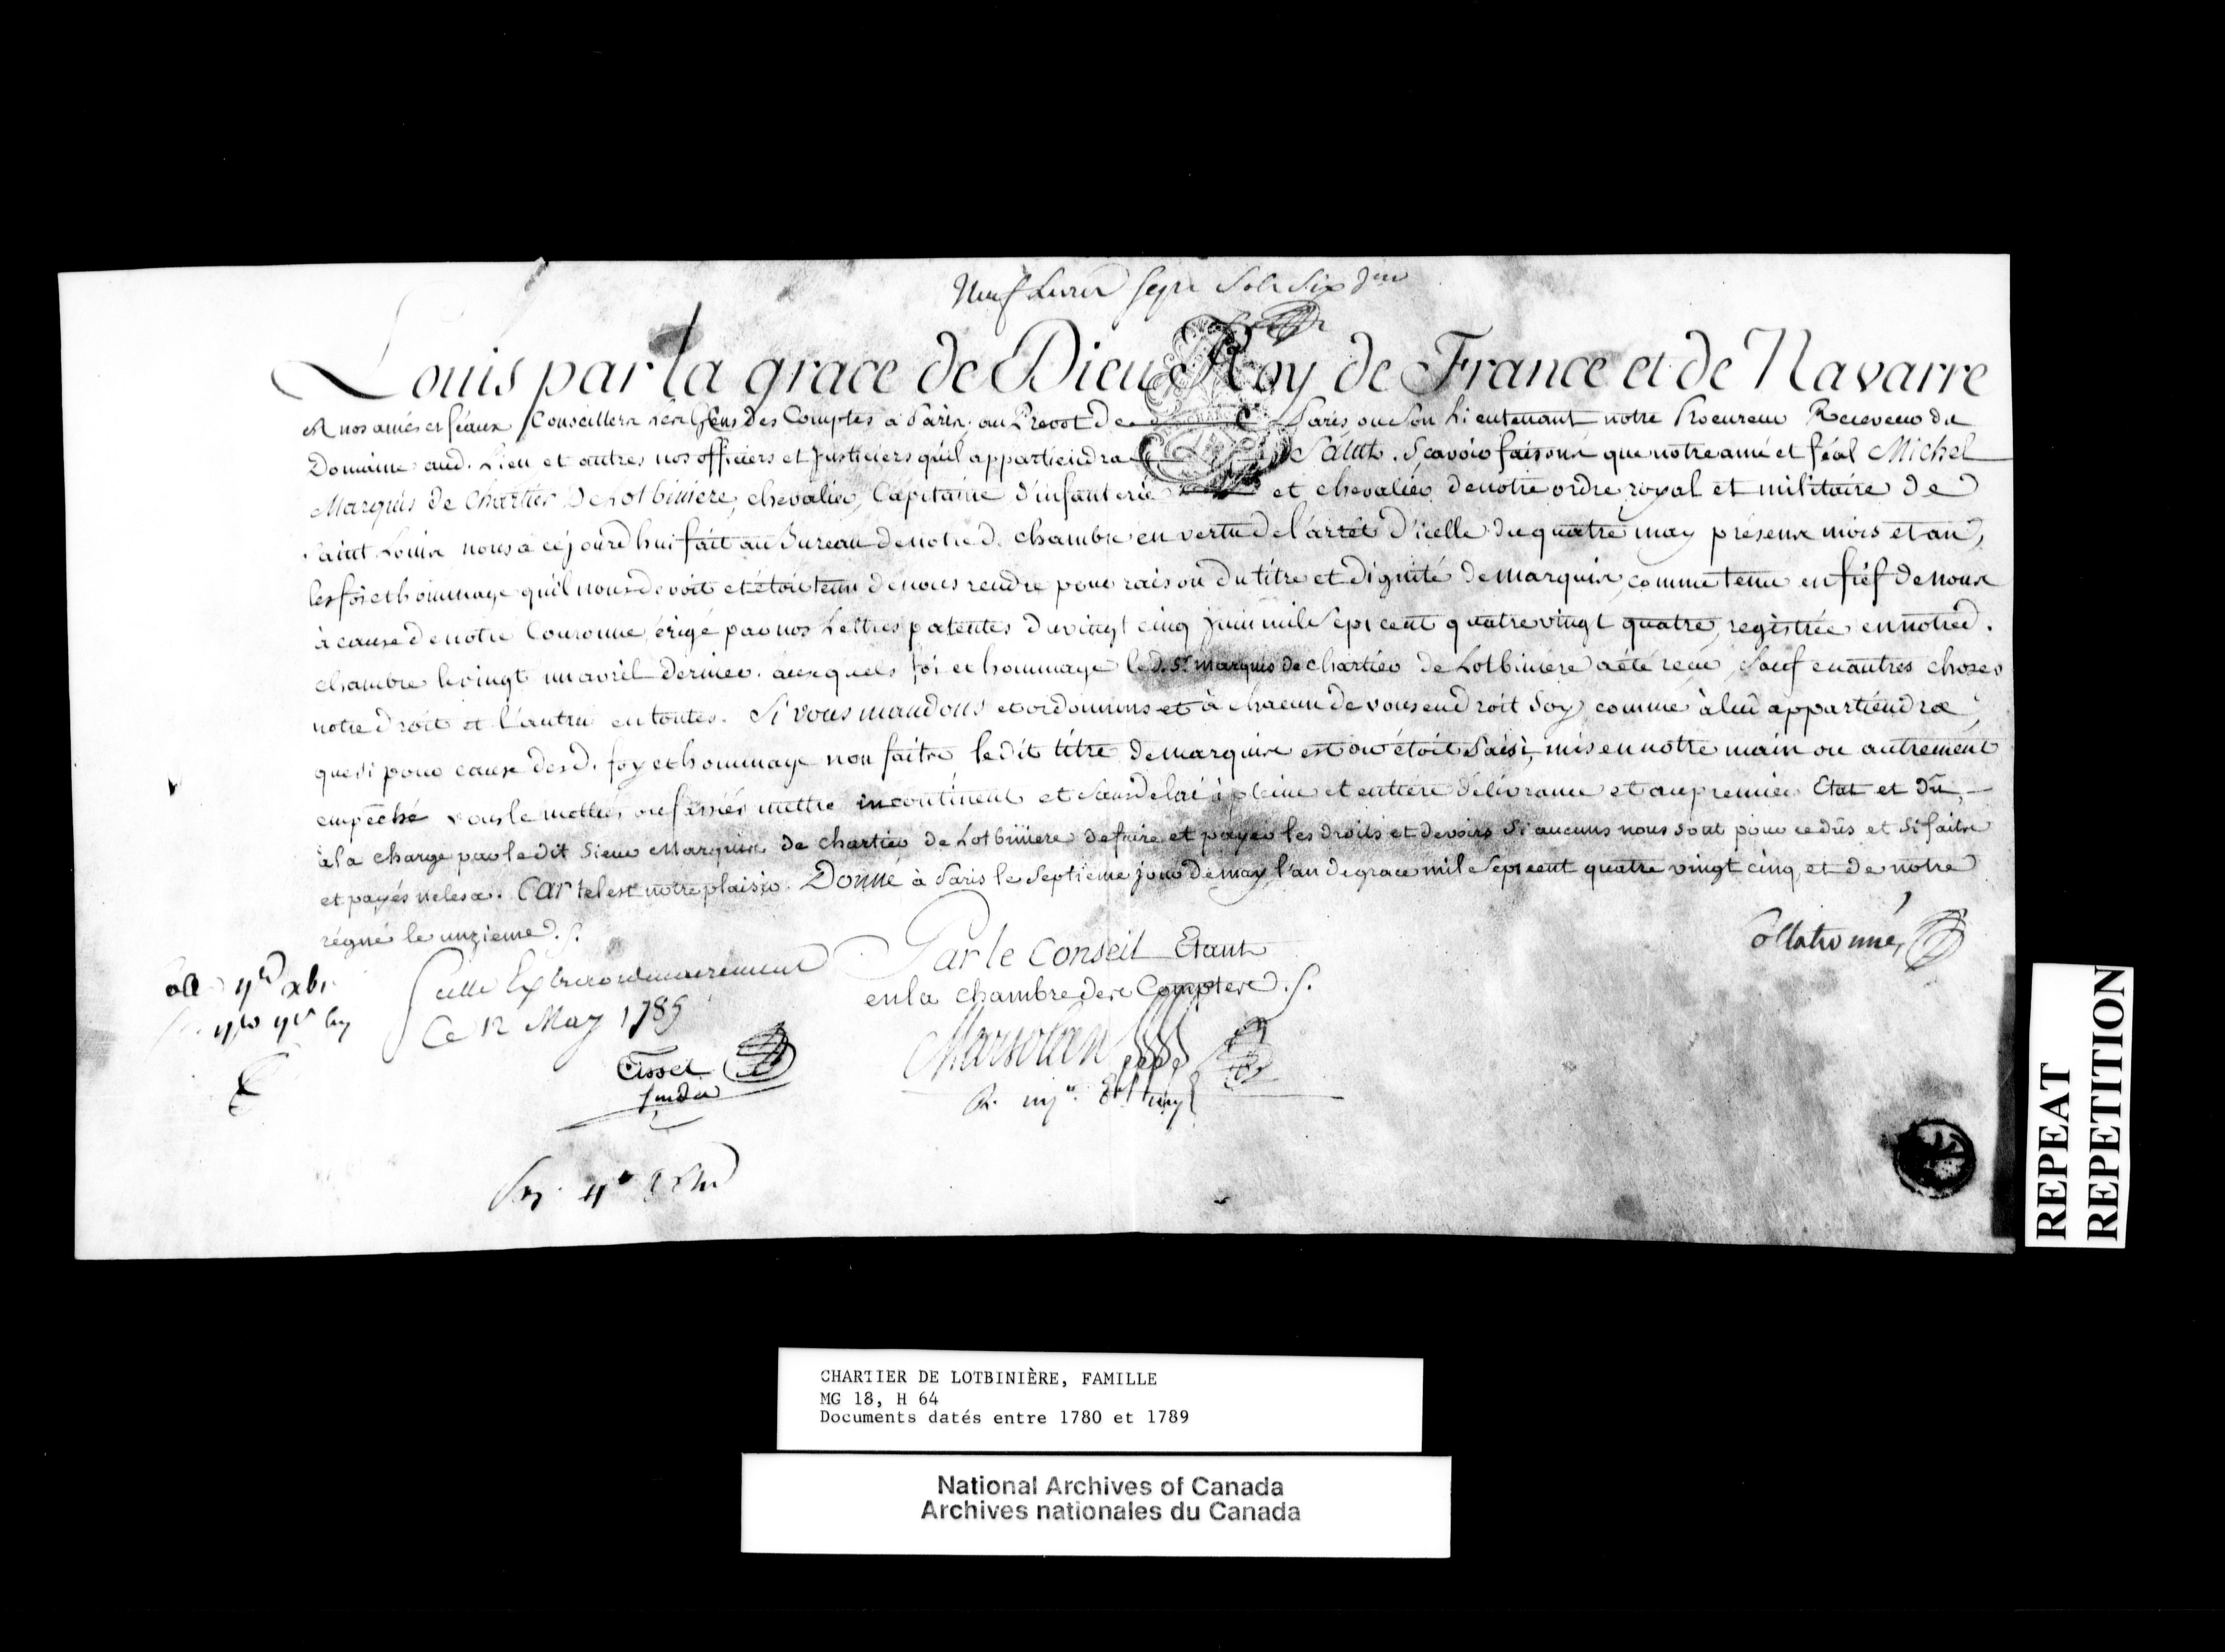 Neuf Livres sept sols six den
Louis par la grace de Dieu Roy de France et de Navarre
A nos amés et féaux Conseillers les Gens des Comptes à Paris. au Prevot de Paris ou son Lieutenant notre Procureur Receveur du
Domaine aud. Lieu et autres nos officiers et Justiciers qu'il appartiendra Salut. Sçavoir faisons que notre amé et féal Michel
Marquis de Chartier De Lotbiniere, chevalier, Capitaine d'infanterie et chevalier de notre ordre royal et militaire de
Saint Louis nous a cejourd'hui fait au Bureau de notred. chambre en vertu de l'arrêt d'icelle du quatre may présens mois et an,
les foi et hommage qu'il nous devoit et étoit tenu de nous rendre pour raison du titre et dignité de marquis, comme tenu en fief de nous
à cause de notre Couronne, érigé par nos Lettres patentes du vingt cinq juin mile sept cent quatre vingt quatre, registrée en notred.
chambre le vingt un avril dernier. auxquels foi et hommage led. Sr. marquis de chartier de Lotbiniere a été recu, Sauf en autres choses
notre droit et l'autrui en toutes. Si vous mandons et ordonnons et à chacun de vous en droit soy comme à lui appartiendra,
que si pour cause desd. foy et hommage non faits ledit titre de marquis est ou étoit saisi, mis en notre main ou autrement
empêché vous le mettiés ou fassiés mettre incontinent et sans delai à pleine et entiere délivrance et au premier Etat et dû,
à la charge par ledit Sieur Marquis de chartier de Lotbiniere de faire et payer les droits et devoirs si aucuns nous sont pour ce dûs et si faits
et payés ne les a. Car tel est notre plaisir. Donné à Paris le Septieme jour de may l'an de grace mil sept cent quatre vingt cinq, et de notre
régne le unzieme.
Collationné
Par le Conseil Etant
en la chambre des Comptes.
Marsolan
Scellé Extraordinairement
Ce 12 May 1785
REPEAT
REPETITION
CHARTIER DE LOTBINIÈRE, FAMILLE
MG 18, H 64
Documents datés entre 1780 et 1789
National Archives of Canada
Archives nationales du Canada